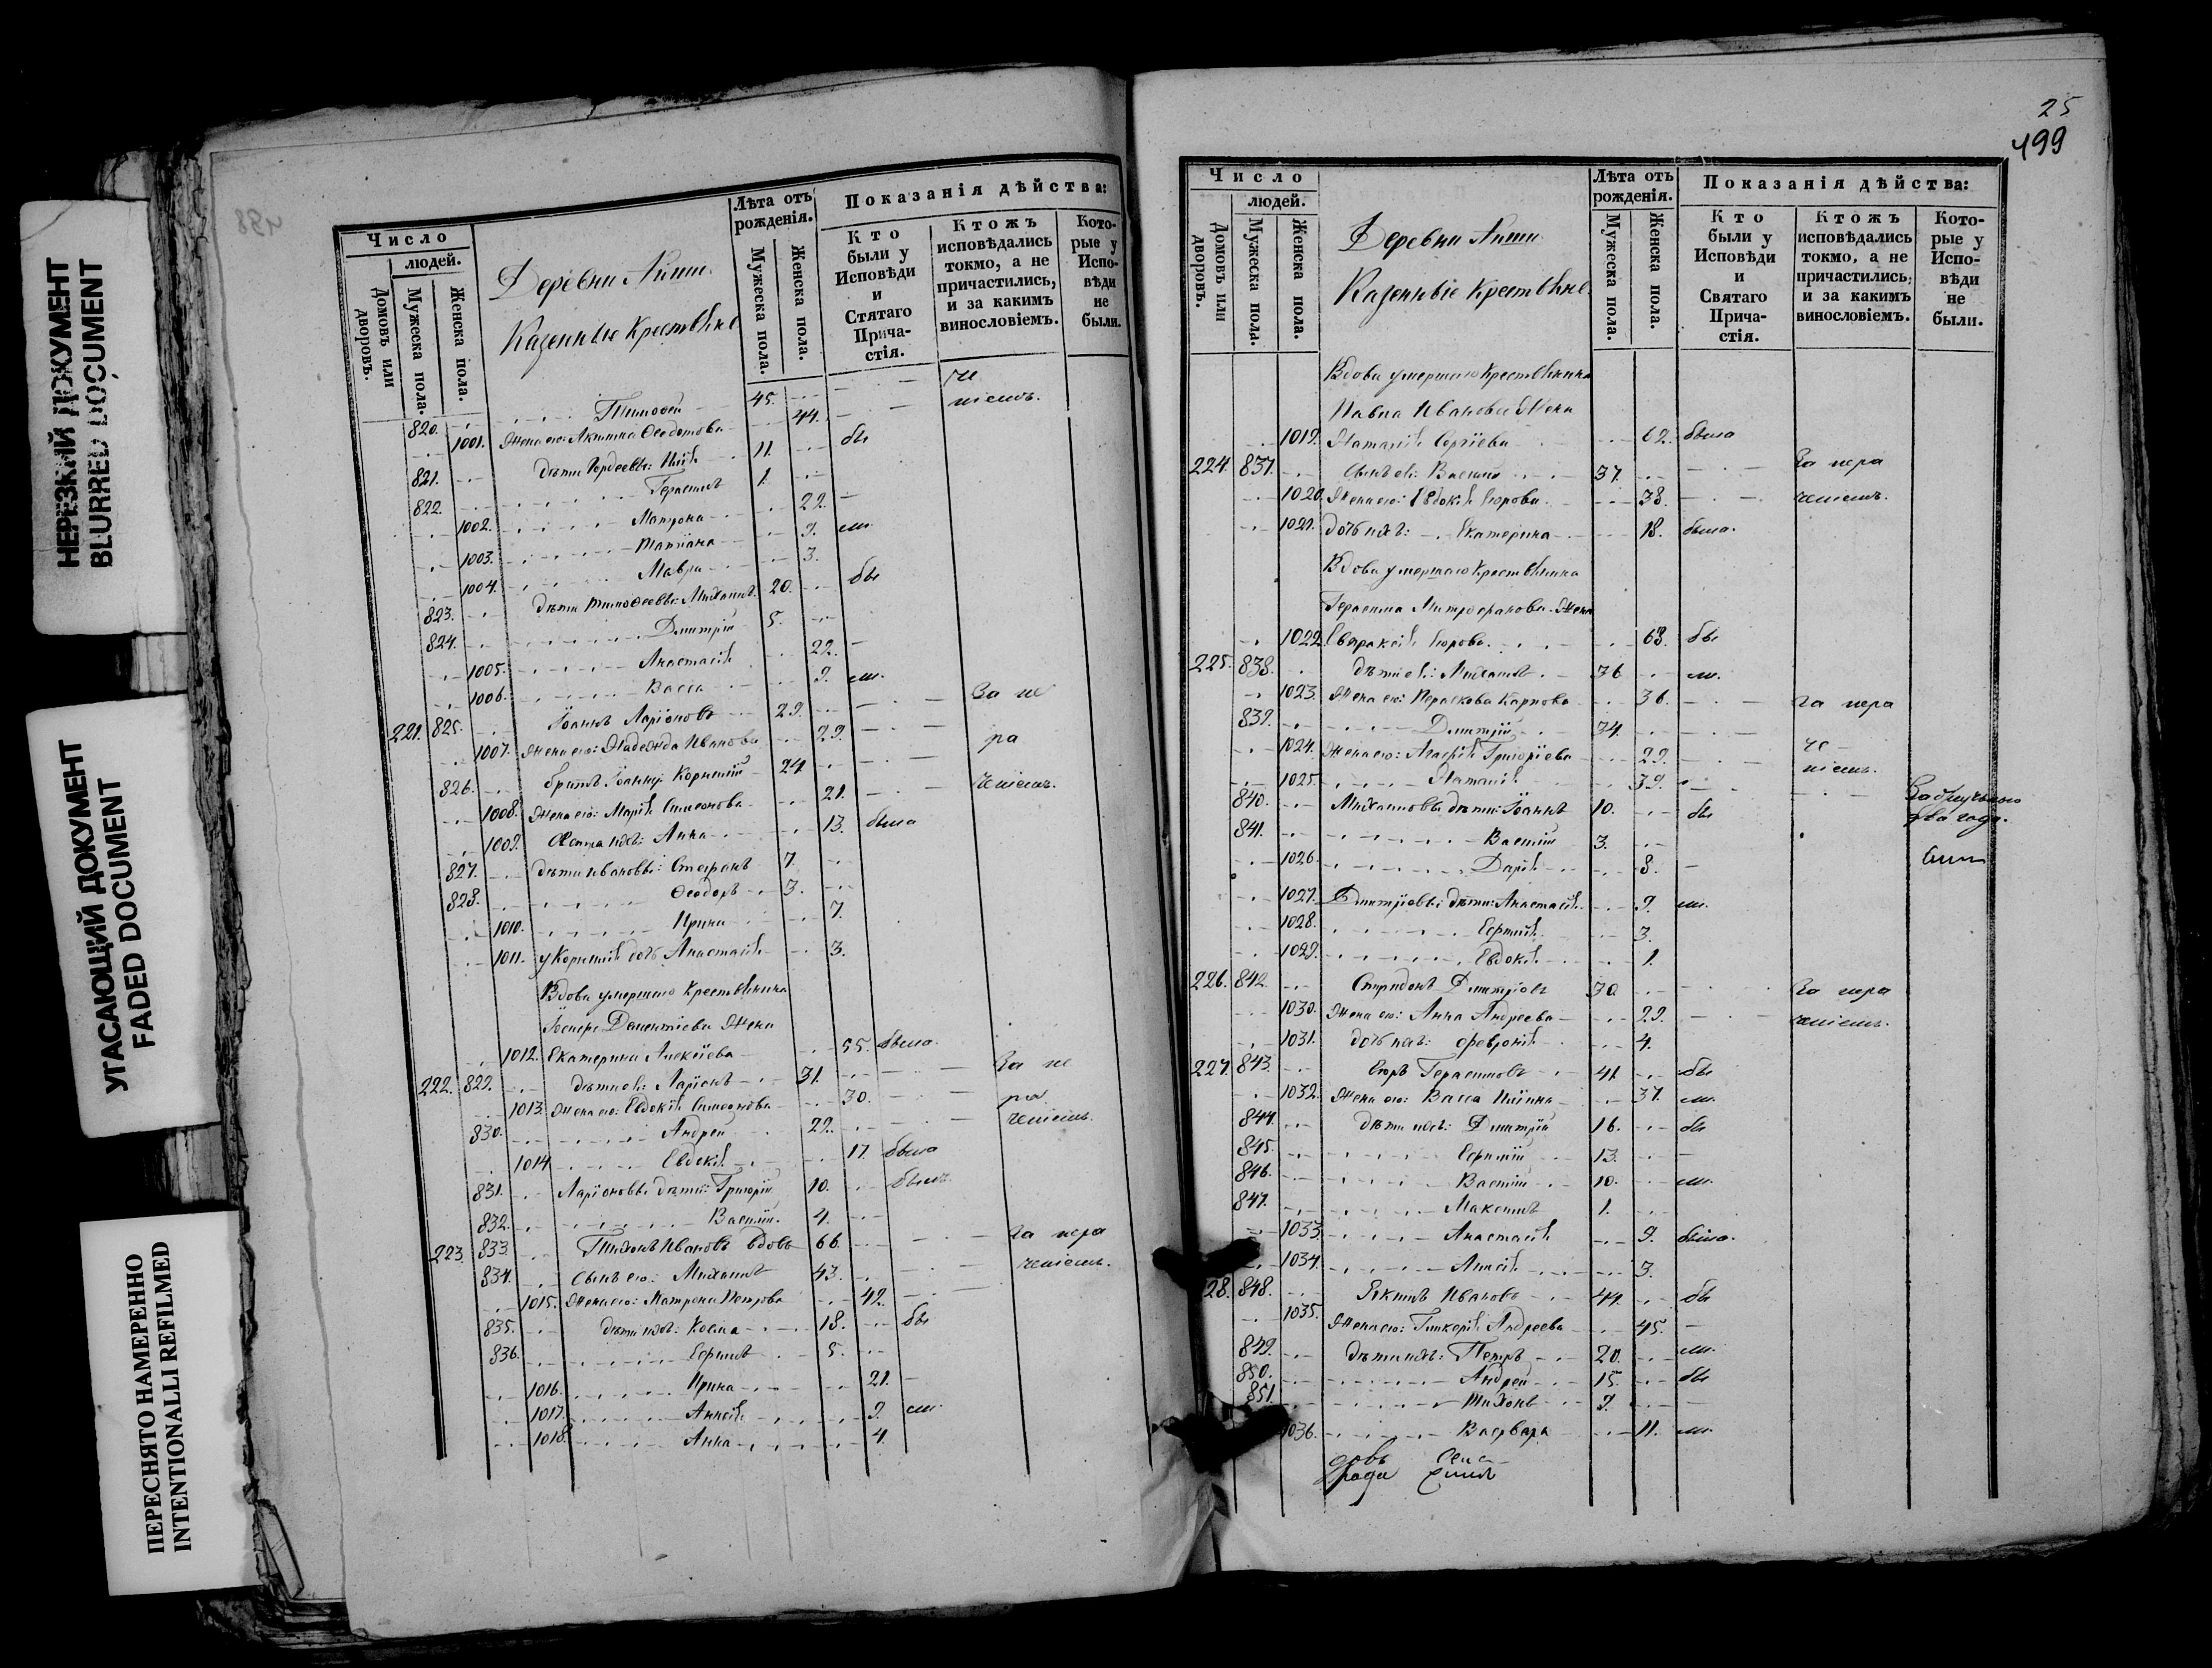 НЕРЕЗКИЙ ДОКУМЕНТ
BLURRED DOCUMENT
УГАСАЮЩИЙ ДОКУМЕНТ
FADED DOCUMENT
ПЕРЕСНЯТО НАМЕРЕННО
INTENTIONALLI REFILMED
498
Число
людей.
Домовъ или дворовъ.
Мужеска пола.
Женска пола.
Деревни
Казенные Крестьяне
Лѣта отъ рожденія.
Мужеска пола.
Женска пола.
Показанія дѣйства:
Кто были у Исповѣди и Стятаго Прича-стія.
Ктожъ исповѣдались токмо, а не причастились, и за какимъ винословіемъ.
Кото-рые у Испо-вѣди не были.
820. Тимофей 45. че
1001. Жена его: Акилина Ѳеодотова 44. ніемъ.
821. дѣти Гордеевы: 11. бы
822. Герасимъ 1.
1002. Матрона 22.
1003. Татіана 9. ли.
1004. Мавра 3.
823. Дѣти Тимоѳеевы: Михаилъ 20. бы
824. Дмитрій 5.
1005. Анастасія 22.
1006. Васса 9. ли.
221. 825. Іоаннъ Ларіоновъ 29. За не
1007. Жена его: Надежда Иванова 29. ра
826. братъ Іоанну: Корнилій 24. ченіемъ.
1008. Жена его: Марія Симеонова 21.
1009. Сестра ихъ: Анна 13. была
827. дѣти Ивановы: Стефанъ 7.
828. Ѳеодоръ 3.
1010. Ирина 7.
1011. у Корнилія дочь Анастасія 3.
Вдова умершаго Крестьянина
Дементіева Жена
1012. Екатерина Алексіева 55. была.
222. 829. дѣти ея: Ларіонъ 31. За не
1013. Жена его: Евдокія Симеонова 30. ра
830. Андрей 22. ченіемъ.
1014 Евдокія 17. была
831. Ларіоновы дѣти: Григорій 10. былъ.
832. Василій. 4.
223. 833. Тихонъ Ивановъ вдовъ 66. За нера
834. Сынъ его: Михаилъ 43. ченіемъ.
1015. Жена его: Матрона Петрова 42.
835. дѣти ихъ: Косма 18. бы
836. Ефимъ 5.
1016. Ирина 21.
1017. Анисія 9. ли.
1018. Анна 4.
25
499
Число
людей.
Домовъ или дворовъ.
Мужеска пола.
Женска пола.
Деревни
Казенные Крестьяне.
Лѣта отъ рожденія.
Мужеска пола.
Женска пола.
Показанія дѣйства:
Кто были у Исповѣди и Святаго Прича-стія.
Ктожъ исповѣдались токмо, а не причастились, и за какимъ винословіемъ.
Кото-рые у Испо-вѣди не были.
Вдова умершаго Крестьянина
Павла Иванова Жена
1019. Наталія Сергіева 62. была
224. 837. Сынъ ея: Василій 37. За нера
1020. Жена его: Евдокія Егорова 38. ченіемъ.
1021. дочь ихъ: Екатерина 18. была.
Вдова умершаго Крестьянина
Герасима Митрофанова Жена
1022. Евпраксія Егорова 63. бы
225. 838. дѣти ея: Михаилъ 36 ли.
1023. Жена его: Параскева Карпова 36. За нера
839. Дмитрій 34.
1024. Жена его: Агафія Григоріева 29. че
1025. Наталія 39. ніемъ.
840. Михаиловы дѣти: Іоаннъ 10. бы
два года.
841. Василій 3.
1026. Дарія 8.
1027. Дмитріевы дѣти: Анастасія 9. ли.
1028. Ефимія 3.
1029. Евдокія 1.
226. 842. Спиридонъ Дмитріевъ 30. За нера
1030. Жена его: Анна Андреева 29. ченіемъ.
1031. дочь ихъ: Февронія 4.
227. 843. Егоръ Герасимовъ 41. бы
1032. Жена его: Васса 37. ли.
844. дѣти ихъ: Дмитрій 16. бы
845. Ефимій 13.
846. Василій 10. ли.
847. Максимъ 1.
1033. Анастасія 9. была.
1034. Анисія 3.
28. 848. Ивановъ 44. бы
1035. Жена его: Гликерія Андреева 45.
849. дѣти ихъ: Петръ 20. ли.
850. Андрей 15. бы
851. Тихонъ 9.
1036. Варвара 11. ли.